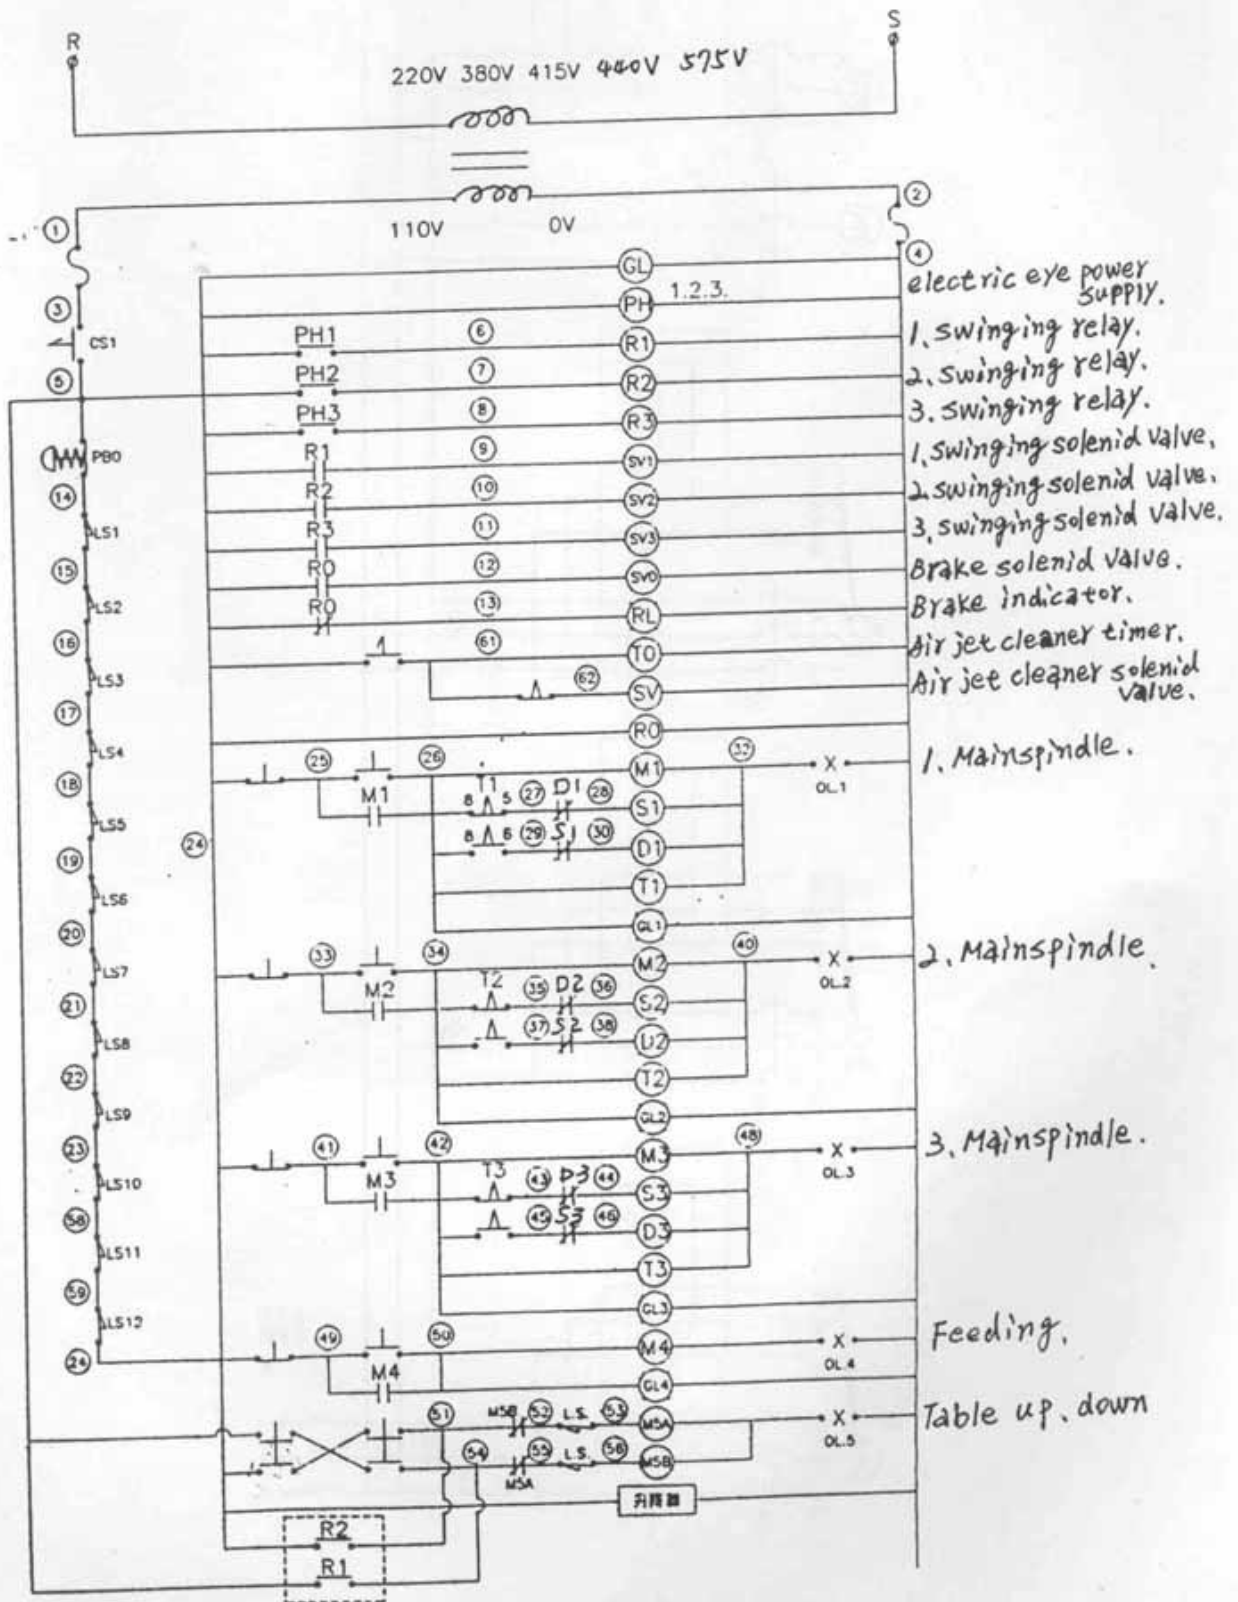 R
S
220V 380V 415V 440V 575V
110V 0V
1
2
3
4
CS1
5
PB0
14
LS1
15
LS2
16
LS3
17
LS4
18
LS5
19
LS6
20
LS7
21
LS8
22
LS9
23
LS10
58
LS11
59
LS12
24
24
GL
PH 1.2.3. electric eye power supply.
PH1 6 R1 1. swinging relay.
PH2 7 R2 2. swinging relay.
PH3 8 R3 3. swinging relay.
R1 9 SV1 1. swinging solenid valve.
R2 10 SV2 2. swinging solenid valve.
R3 11 SV3 3. swinging solenid valve.
R0 12 SV0 Brake solenid valve.
R0 13 RL Brake indicator.
61 T0 Air jet cleaner timer.
62 SV Air jet cleaner solenid valve.
R0
25 26 M1 32 X OL.1 1. Mainspindle.
M1 T1 8 5 27 D1 28 S1
8 6 29 S1 30 D1
T1
GL1
33 34 M2 40 X OL.2 2. Mainspindle.
M2 T2 35 D2 36 S2
37 S2 38 D2
T2
GL2
41 42 M3 48 X OL.3 3. Mainspindle.
M3 T3 43 D3 44 S3
45 S3 46 D3
T3
GL3
49 50 M4 X OL.4 Feeding.
M4 GL4
51 M5B 52 L.S. 53 M5A X OL.5 Table up. down
54 M5A 55 L.S. 56 M5B
升降器
R2
R1